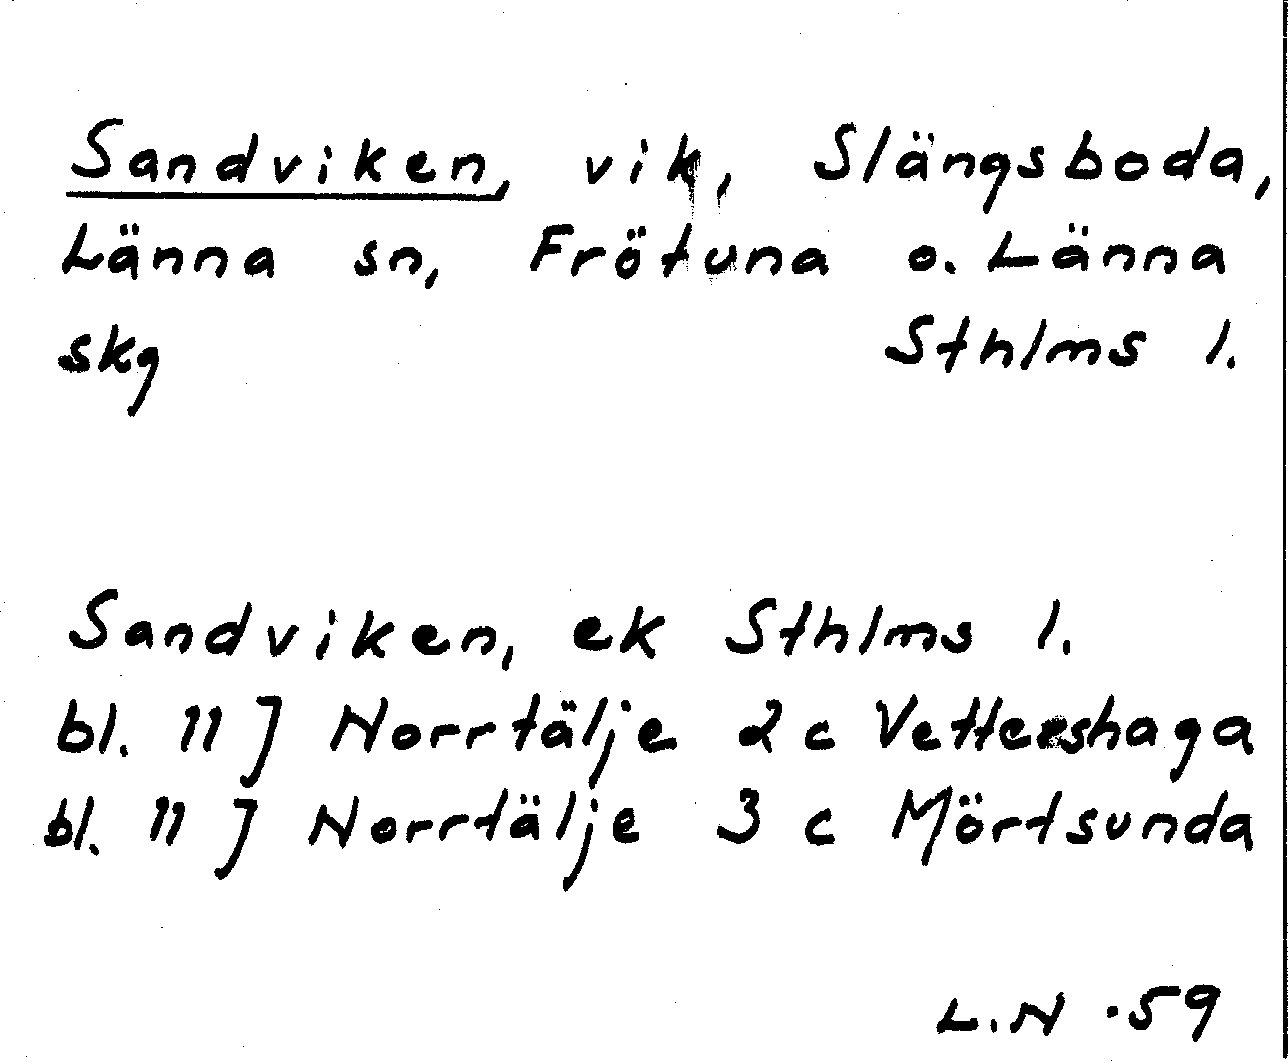 Sandviken, vik, Slängsboda,
Länna sn, Frötuna o. Länna
skg Sthlms l.
Sandviken, ek Sthlms l.
bl. 11 J Norrtälje 2 c Vettershaga
bl. 11 J Norrtälje 3 c Mörtsunda
L.N .59